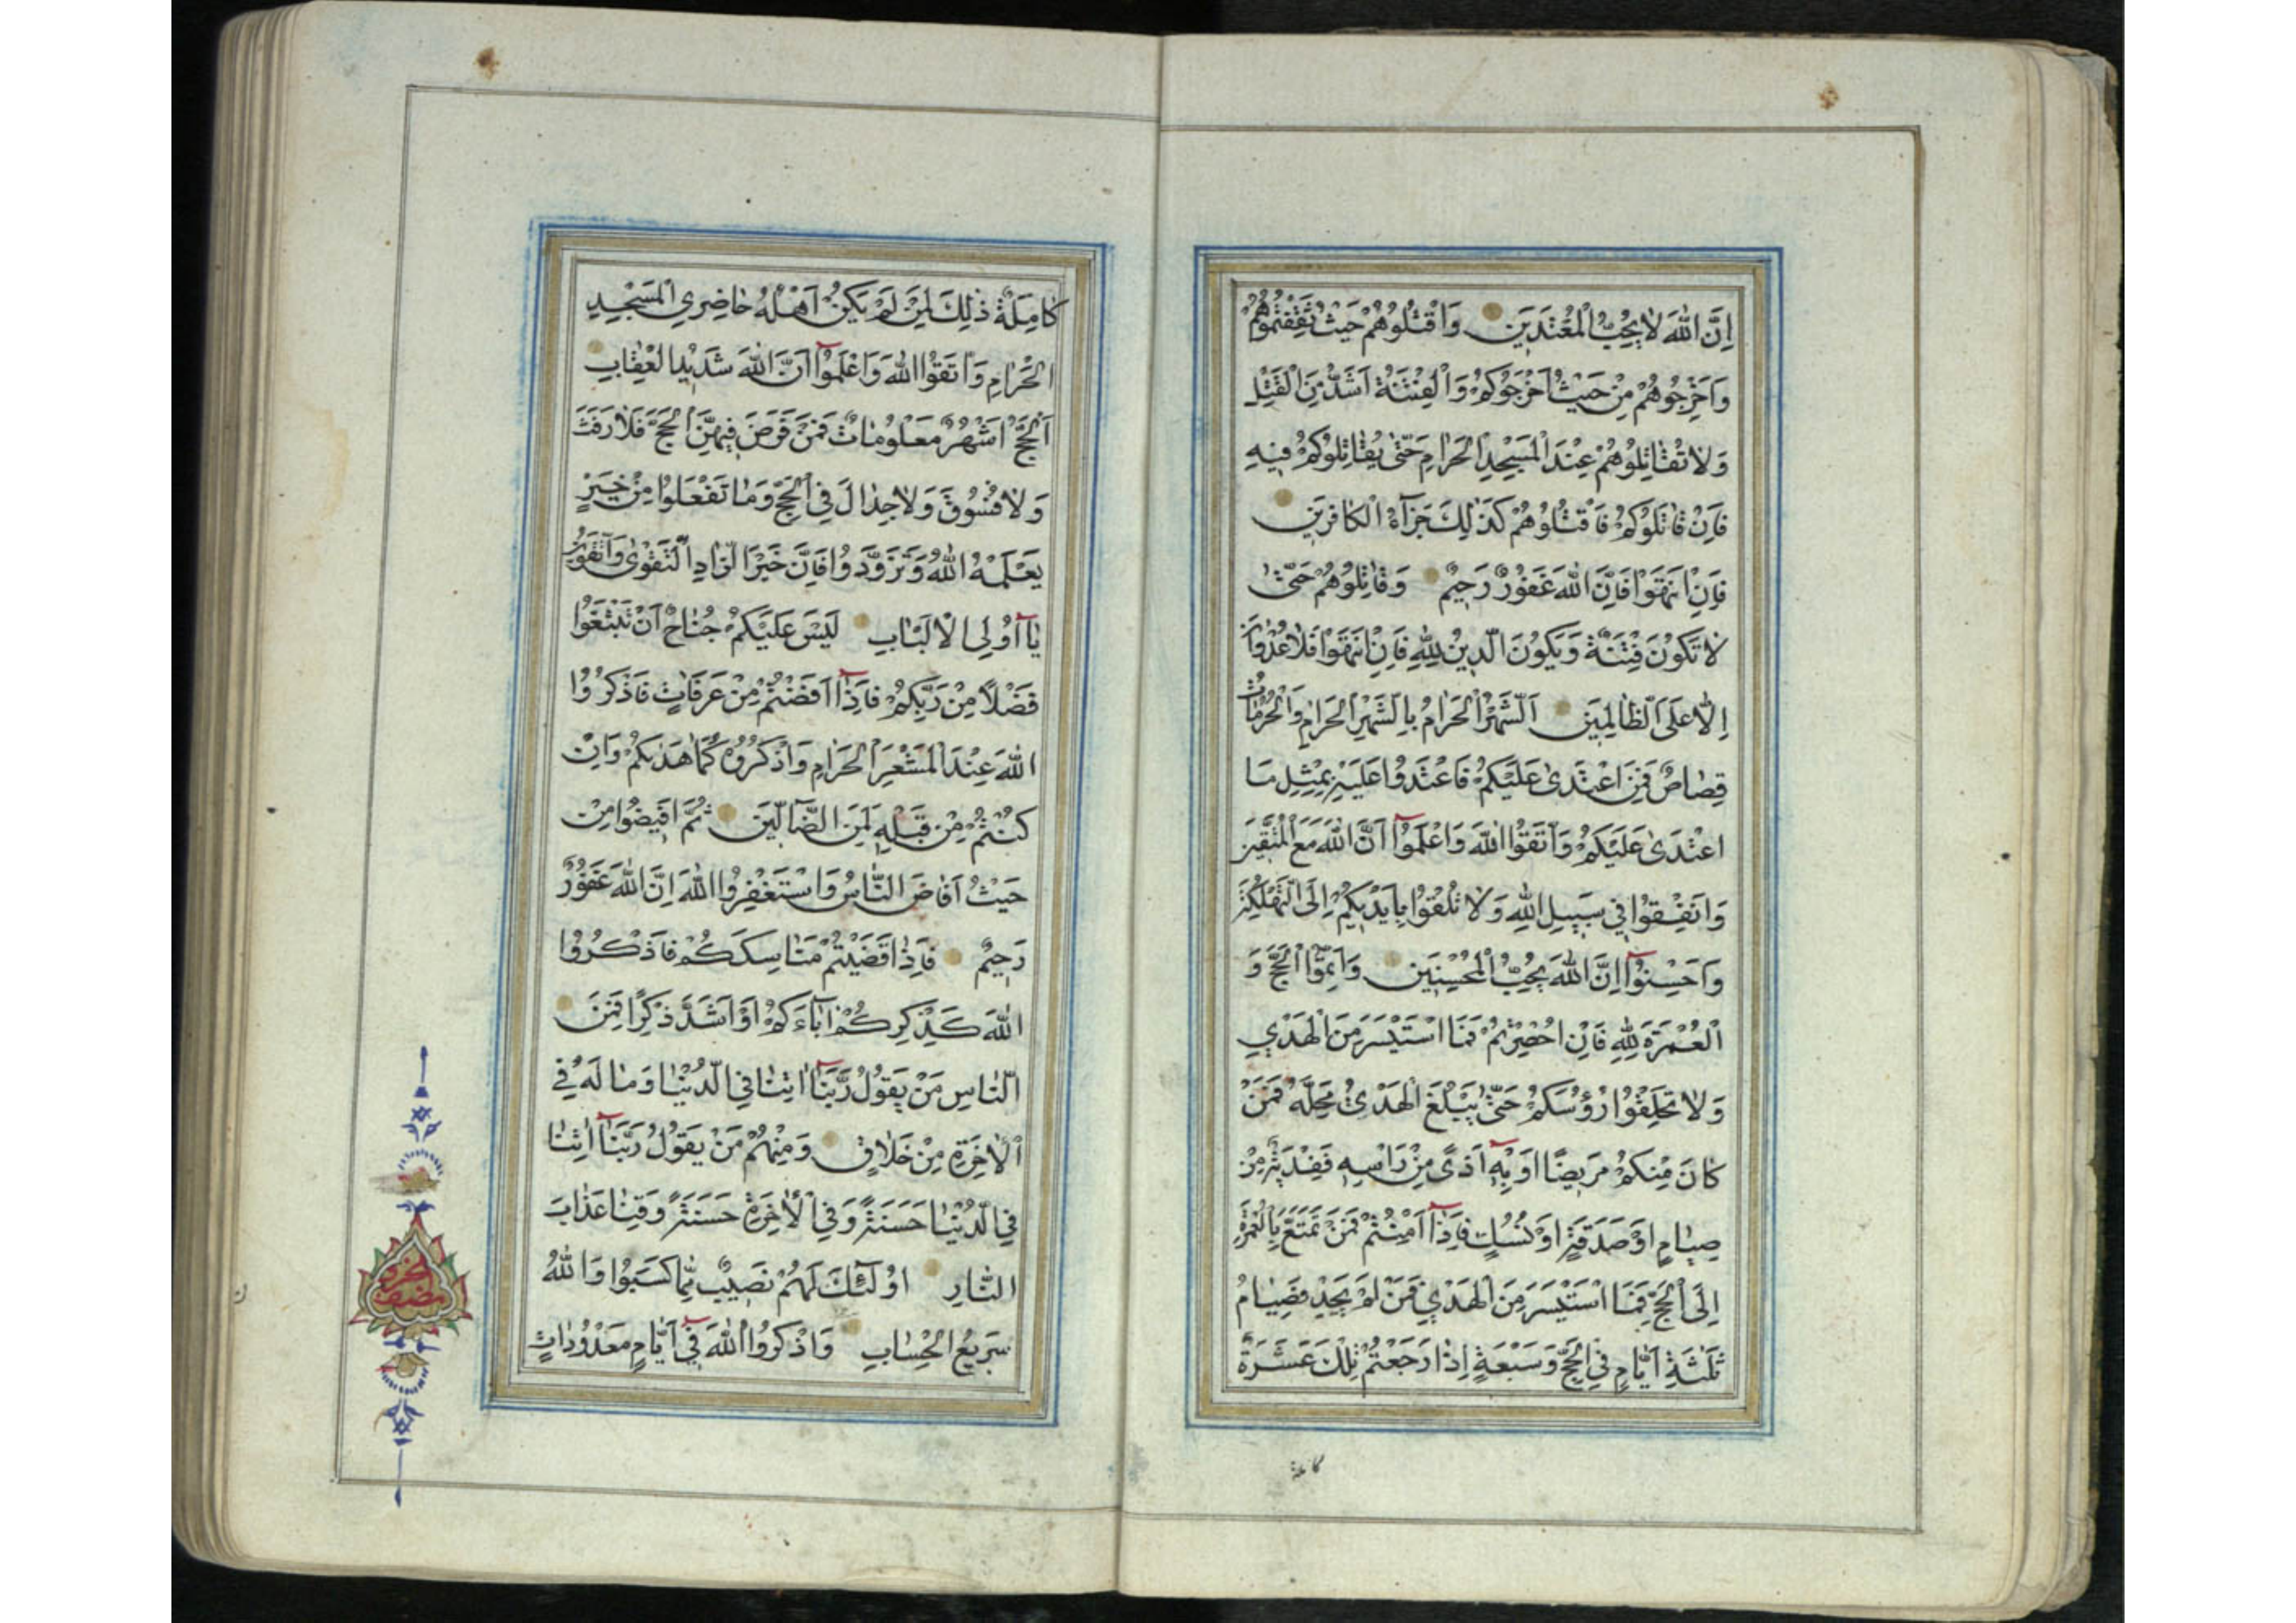 اِنَّ اللهَ لٰا يُحِبُّ الْمُعْتَدَيِنَ وَاقْتُلُوهُمْ حَيْثُ ثَقِفْتُمُوهُمْ
وَاَخْرِجُوهُمْ مِنْ حَيْثُ اَخْرَجُوكُمْ وَالْفِتْنَةُ اَشَدُّ مِنَ الْقَتْلِ
وَلٰا تُقٰاتِلُوهُمْ عِنْدَ الْمَسْجِدِ الْحَرٰامِ حَتّٰى يُقٰاتِلُوكُمْ فيٖهِ
فَاِنْ قٰاتَلُوكُمْ فَاقْتُلُوهُمْ كَذٰلِكَ جَزآءُ الْكٰافِريٖنَ
فَاِنِ انْتَهَوْا فَاِنَّ اللهَ غَفُورٌ رَحيٖمٌ وَقٰاتِلُوهُمْ حَتّٰى
لٰا تَكُونَ فِتْنَةٌ وَيَكُونَ الدّيٖنُ لِلّٰهِ فَاِنِ انْتَهَوْا فَلٰا عُدْوٰانَ
اِلّٰا عَلَى الظّٰالِميٖنَ اَلشَّهْرُ الْحَرٰامُ بِالشَّهْرِ الْحَرٰامِ وَالْحُرُمٰاتُ
قِصٰاصٌ فَمَنِ اعْتَدٰى عَلَيْكُمْ فَاعْتَدُوا عَلَيْهِ بِمِثْلِ مَا
اعْتَدٰى عَلَيْكُمْ وَاتَّقُوا اللهَ وَاعْلَمُوآ اَنَّ اللهَ مَعَ الْمُتَّقيٖنَ
وَاَنْفِقُوا فيٖ سَبيٖلِ اللهِ وَلٰا تُلْقُوا بِاَيْديٖكُمْ اِلَى التَّهْلُكَةِ
وَاَحْسِنُوآ اِنَّ اللهَ يُحِبُّ الْمُحْسِنيٖنَ وَاَتِمُّوا الْحَجَّ وَ
الْعُمْرَةَ لِلّٰهِ فَاِنْ اُحْصِرْتُمْ فَمَا اسْتَيْسَرَ مِنَ الْهَدْيِ
وَلٰا تَحْلِقُوا رُؤُسَكُمْ حَتّٰى يَبْلُغَ الْهَدْيُ مَحِلَّهُ فَمَنْ
كٰانَ مِنْكُمْ مَريٖضًا اَوْ بِهٖٓ اَذًى مِنْ رَاْسِهٖ فَفِدْيَةٌ مِنْ
صِيٰامٍ اَوْ صَدَقَةٍ اَوْ نُسُكٍ فَاِذٰآ اَمِنْتُمْ فَمَنْ تَمَتَّعَ بِالْعُمْرَةِ
اِلَى الْحَجِّ فَمَا اسْتَيْسَرَ مِنَ الْهَدْيِ فَمَنْ لَمْ يَجِدْ فَصِيٰامُ
ثَلٰثَةِ اَيّٰامٍ فِي الْحَجِّ وَسَبْعَةٍ اِذٰا رَجَعْتُمْ تِلْكَ عَشَرَةٌ
كاملة
كٰامِلَةٌ ذٰلِكَ لِمَنْ لَمْ يَكُنْ اَهْلُهُ حٰاضِرِي الْمَسْجِدِ
الْحَرٰامِ وَاتَّقُوا اللهَ وَاعْلَمُوآ اَنَّ اللهَ شَديٖدُ الْعِقٰابِ
اَلْحَجُّ اَشْهُرٌ مَعْلُومٰاتٌ فَمَنْ فَرَضَ فيٖهِنَّ الْحَجَّ فَلٰا رَفَثَ
وَلٰا فُسُوقَ وَلٰا جِدٰالَ فِي الْحَجِّ وَمٰا تَفْعَلُوا مِنْ خَيْرٍ
يَعْلَمْهُ اللهُ وَتَزَوَّدُوا فَاِنَّ خَيْرَ الزّٰادِ التَّقْوٰى وَاتَّقُونِ
يٰآ اُولِي الْاَلْبٰابِ لَيْسَ عَلَيْكُمْ جُنٰاحٌ اَنْ تَبْتَغُوا
فَضْلًا مِنْ رَبِّكُمْ فَاِذٰآ اَفَضْتُمْ مِنْ عَرَفٰاتٍ فَاذْكُرُوا
اللهَ عِنْدَ الْمَشْعَرِ الْحَرٰامِ وَاذْكُرُوهُ كَمٰا هَدٰيكُمْ وَاِنْ
كُنْتُمْ مِنْ قَبْلِهٖ لَمِنَ الضّآلّيٖنَ ثُمَّ اَفيٖضُوا مِنْ
حَيْثُ اَفٰاضَ النّٰاسُ وَاسْتَغْفِرُوا اللهَ اِنَّ اللهَ غَفُورٌ
رَحيٖمٌ فَاِذٰا قَضَيْتُمْ مَنٰاسِكَكُمْ فَاذْكُرُوا
اللهَ كَذِكْرِكُمْ اٰبٰاءَكُمْ اَوْ اَشَدَّ ذِكْرًا فَمِنَ
النّٰاسِ مَنْ يَقُولُ رَبَّنَآ اٰتِنٰا فِي الدُّنْيٰا وَمٰا لَهُ فِي
الْاٰخِرَةِ مِنْ خَلٰاقٍ وَمِنْهُمْ مَنْ يَقُولُ رَبَّنَآ اٰتِنٰا
فِي الدُّنْيٰا حَسَنَةً وَفِي الْاٰخِرَةِ حَسَنَةً وَقِنٰا عَذٰابَ
النّٰارِ اُولٰٓئِكَ لَهُمْ نَصيٖبٌ مِمّٰا كَسَبُوا وَاللهُ
سَريٖعُ الْحِسٰابِ وَاذْكُرُوا اللهَ فيٖٓ اَيّٰامٍ مَعْدُودٰاتٍ